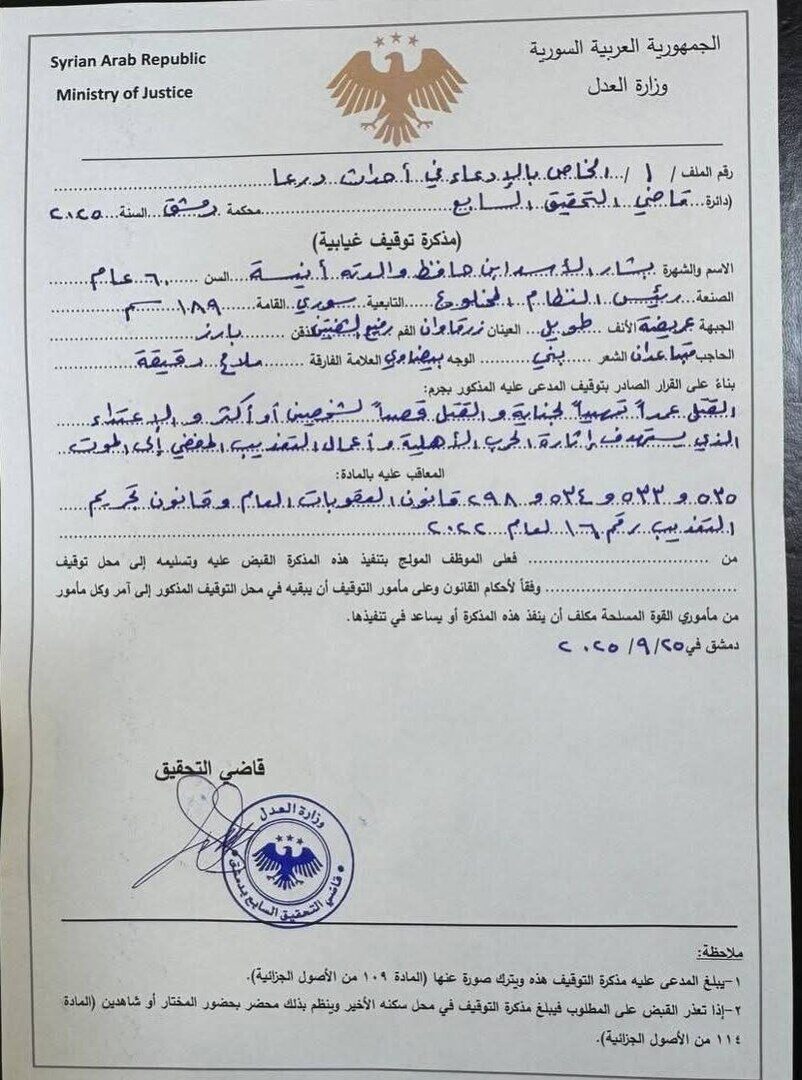 Syrian Arab Republic
الجمهورية العربية السورية
Ministry of Justice
وزارة العدل
رقم الملف / ١ / الخاص بالإدعاء في أحداث درعا
(دائرة قاضي التحقيق السابع محكمة دمشق السنة ٢٠٢٥
(مذكرة توقيف غيابية)
الاسم والشهرة بشار الأسد ابن حافظ والدته أنيسة السن ٦٠ عام
الصنعة رئيس النظام المخلوع التابعية سوري القامة ١٨٩ سم
الجبهة عريضة الأنف طويل العينان زرقاوان الفم رفيع الشفتين الذقن بارز
الحاجب متباعدان الشعر بني الوجه بيضاوي العلامة الفارقة ملامح دقيقة
بناءً على القرار الصادر بتوقيف المدعى عليه المذكور بجرم:
القتل عمداً تمهيداً لجناية و القتل قصداً لشخصين أو أكثر و الإعتداء
الذي يستهدف إثارة الحرب الأهلية و أعمال التعذيب المفضي إلى الموت
المعاقب عليه بالمادة:
٥٣٥ و ٥٣٣ و ٥٣٤ و ٢٩٨ قانون العقوبات العام و قانون تجريم
التعذيب رقم ١٦ لعام ٢٠٢٢
من ........ فعلى الموظف المولج بتنفيذ هذه المذكرة القبض عليه وتسليمه إلى محل توقيف
........ وفقاً لأحكام القانون وعلى مأمور التوقيف أن يبقيه في محل التوقيف المذكور إلى آمر وكل مأمور
من مأموري القوة المسلحة مكلف أن ينفذ هذه المذكرة أو يساعد في تنفيذها.
دمشق في ٢٥/ ٩/ ٢٠٢٥
قاضي التحقيق
وزارة العدل
قاضي التحقيق السابع بدمشق
ملاحظة:
١-يبلغ المدعى عليه مذكرة التوقيف هذه ويترك صورة عنها (المادة ١٠٩ من الأصول الجزائية).
٢-إذا تعذر القبض على المطلوب فيبلغ مذكرة التوقيف في محل سكنه الأخير وينظم بذلك محضر بحضور المختار أو شاهدين (المادة
١١٤ من الأصول الجزائية).